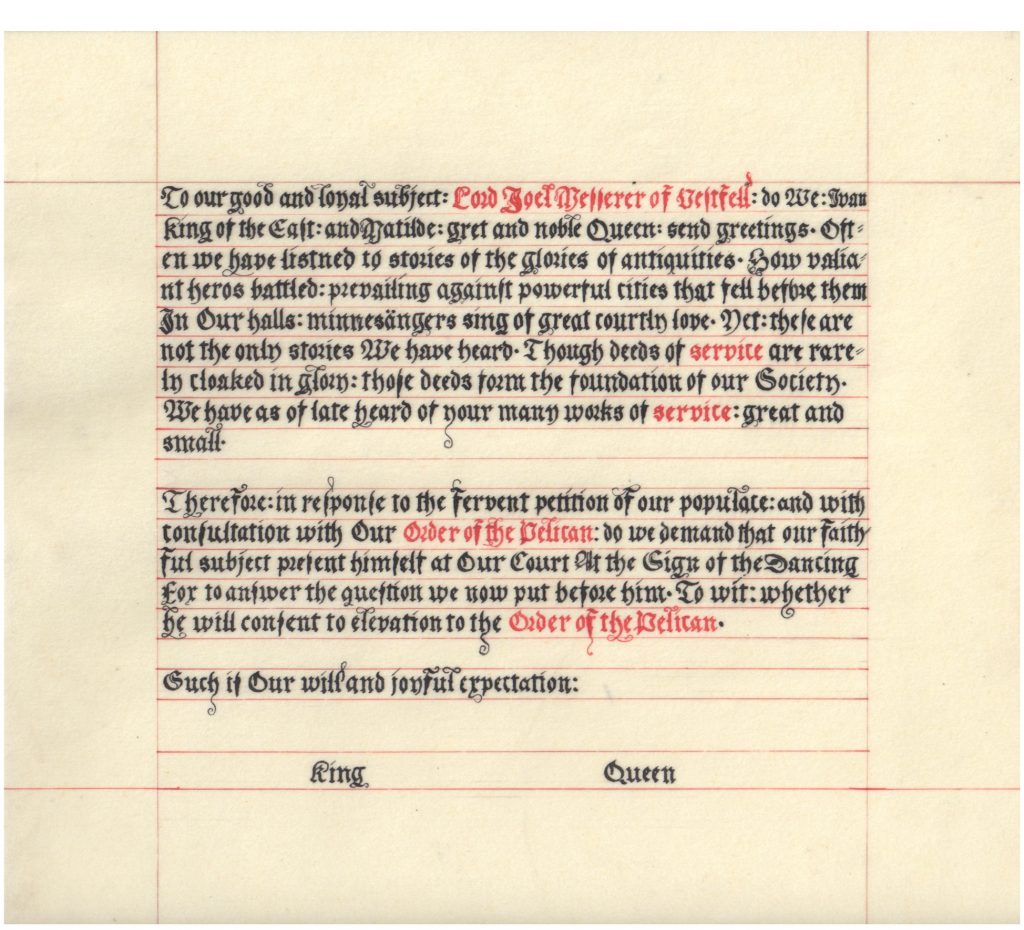 To our good and loyal subject: Lord Joel Messerer of Vestfell: do We: Ivan
King of the East: and Matilde: gret and noble Queen: send greetings. Oft-
en we have listned to stories of the glories of antiquities. How valia-
nt heros battled: prevailing against powerful cities that fell before them
In Our halls: minnesängers sing of great courtly love. Yet: these are
not the only stories We have heard. Though deeds of service are rare-
ly cloaked in glory: those deeds form the foundation of our Society.
We have as of late heard of your many works of service: great and
small.
Therefore: in response to the fervent petition of our populace: and with
consultation with Our Order of the Pelican: do we demand that our faith-
ful subject present himself at Our Court At the Sign of the Dancing
Fox to answer the question we now put before him. To wit: whether
he will consent to elevation to the Order of the Pelican.
Such is Our will and joyful expectation:
King Queen